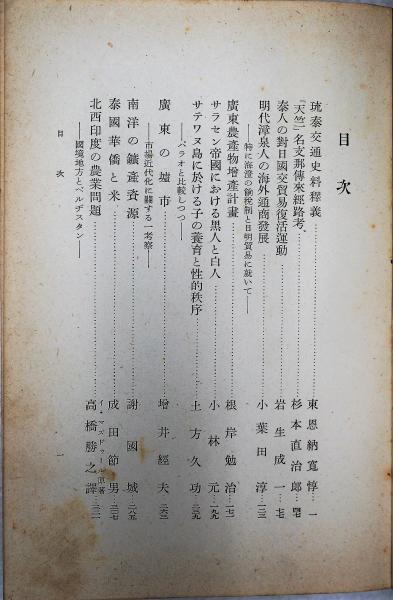 目次
琉泰交通史料釋義……東恩納寬惇 一
『天竺』名支那傳來經路考……杉本直治郎 四七
泰人の對日國交貿易復活運動……岩生成一
明代漳泉人の海外通商發展……小葉田淳 一二三
――特に海澄の餉稅制と日明貿易に就いて――
廣東農產物增產計畫……根岸勉治 一七一
サラセン帝國における黑人と白人……小林元 一九九
サテワヌ島に於ける子の養育と性的秩序……土方久功 二三九
――パラオと比較しつつ――
廣東の墟市……增井經夫 二六三
――市場近代化に關する一考察――
南洋の鑛產資源……謝國城 二八五
泰國華僑と米……成田節男 三〇七
北西印度の農業問題……イ・マズドゥール原著 高橋勝之譯 三三一
――國境地方とベルヂスタン――
目次 一